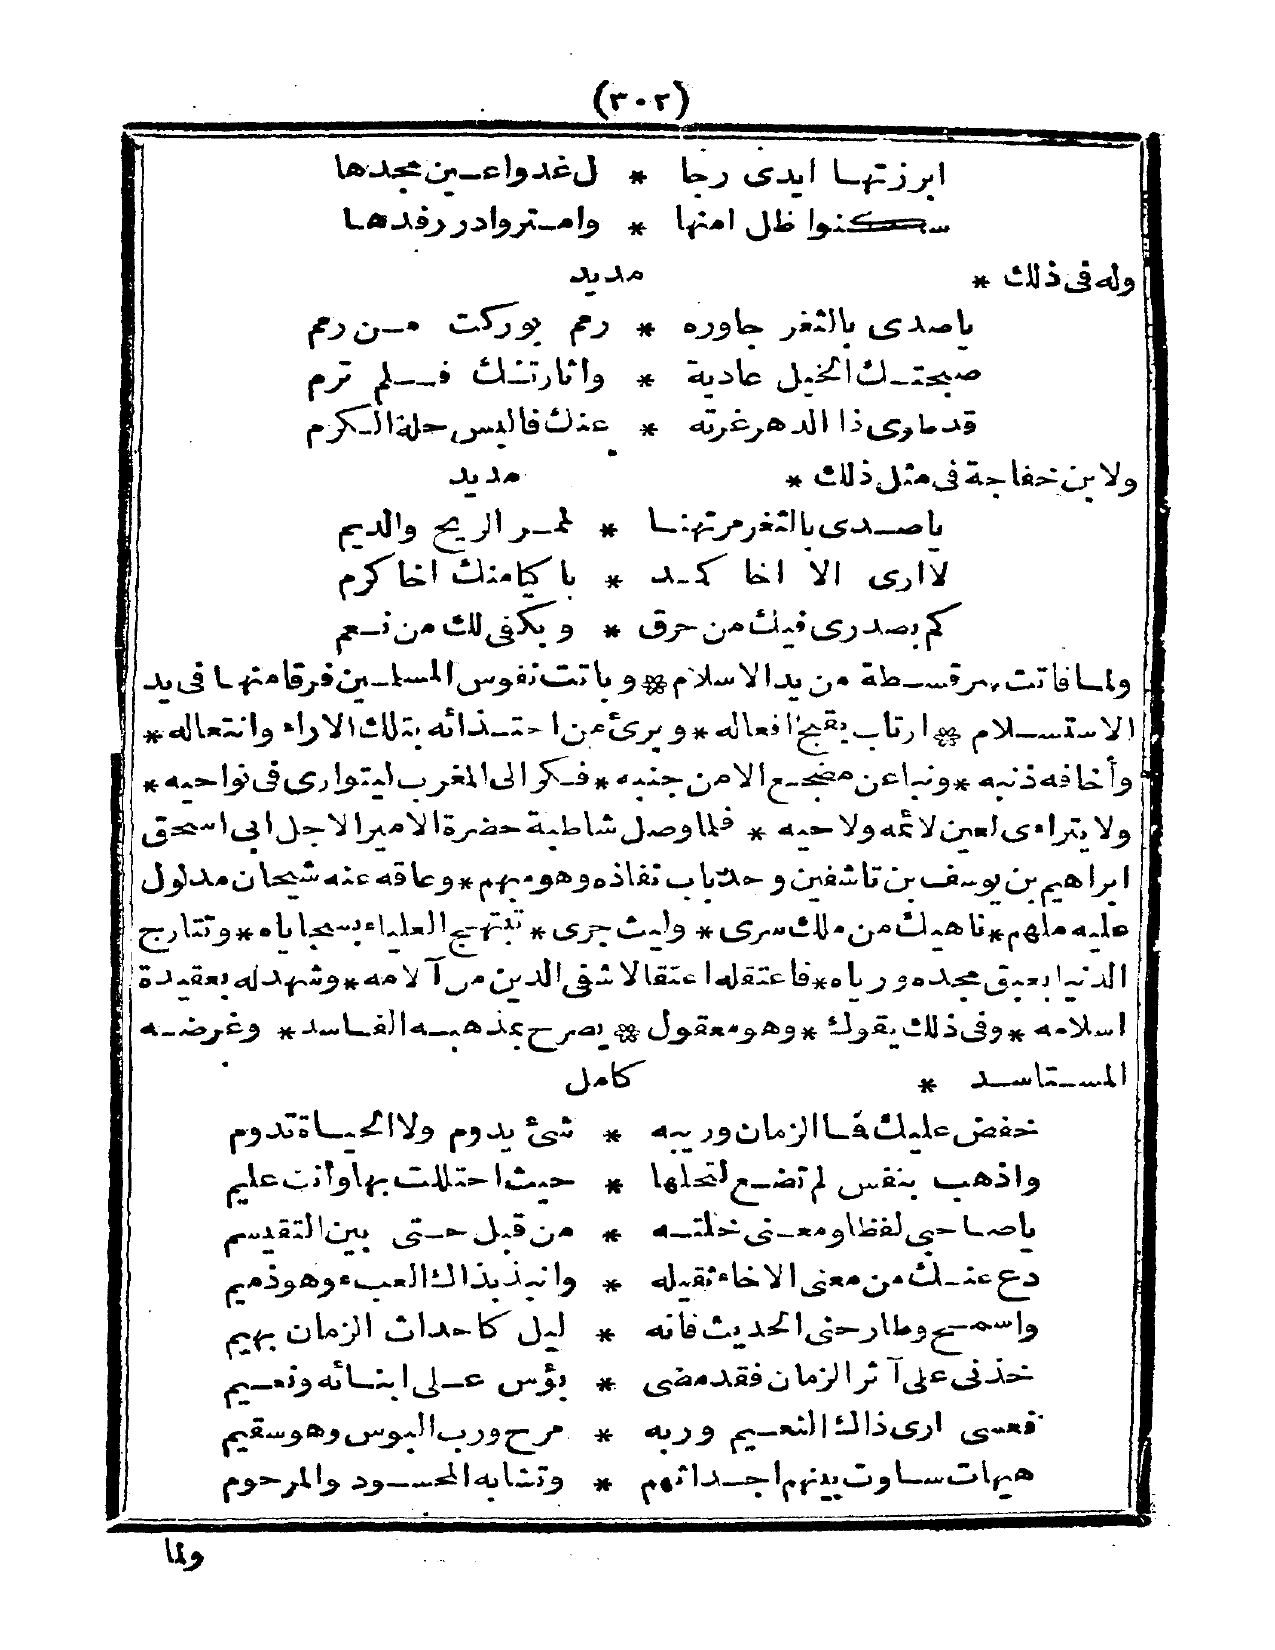 (٣٠٢)
ابرزتها ايدى رجا * ل غدوا عين مجدها
سكنوا ظل امنها * وامتروا در رفدها
وله فى ذلك * مديد
ياصدى بالثغر جاوره * رمم بوركت من رمم
صبحتك الخيل عادية * واثارتك فلم ترم
قد طوى ذا الدهر غرته * عنك فالبس حلة الكرم
ولابن خفاجة فى مثل ذلك * مديد
ياصدى بالثغر مرتهنا * لممر الريح والديم
لاارى الا اخا كمد * باكيا منك اخا كرم
كم بصدرى فيك من حرق * وبكفى لك من نعم
ولما فاتت سرقسطة من يد الاسلام * وباتت نفوس المسلمين فرقا منها فى يد
الاستسلام * ارتاب بقبح افعاله * وبرئ من احتذائه بتلك الاراء وانتعاله *
وأخافه ذنبه * ونبا عن مضجع الامن جنبه * فكر الى المغرب ليتوارى فى نواحيه *
ولا يتراءى لعين لائمه ولاحيه * فلما وصل شاطبة حضرة الامير الاجل ابى اسحق
ابراهيم بن يوسف بن تاشفين وجد باب نفاذه وهو مبهم * وعاقه عنه شيحان مدلول
عليه ملهم * ناهيك من ملك سرى * وليث جرى * تبتهج العلياء بسجاياه * وتتارج
الدنيا بعبق مجده ورياه * فاعتقله اعتقالا شفى الدين من آلامه * وشهد له بعقيدة
اسلامه * وفى ذلك يقول * وهو معقول * يصرح بمذهبه الفاسد * وغرضه
المستاسد * كامل
خفض عليك فما الزمان وريبه * شئ يدوم ولا الحياة تدوم
واذهب بنفس لم تضع لتحلها * حيث احتللت بها وأنت عليم
ياصاحبى لفظا ومعنى خلته * من قبل حتى بين التقسيم
دع عنك من معنى الاخاء ثقيله * وانبذ بذاك العبء وهو ذميم
واسمح وطارحنى الحديث فانه * ليل كاحداث الزمان بهيم
خذنى على آثر الزمان فقد مضى * بؤس على ابنائه ونعيم
فعسى ارى ذاك النعيم وربه * مرح ورب البوس وهو سقيم
هيهات ساوت بينهم اجداثهم * وتشابه المحسود والمرحوم
ولما